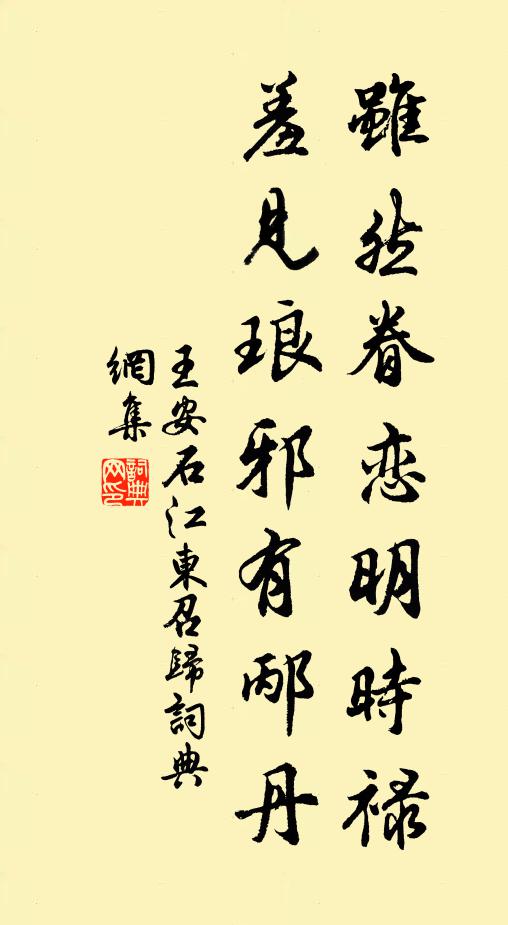 雖然眷戀明時祿
羞見琅邪有邴丹
王安石江東召歸詞典
網集
詞典網印